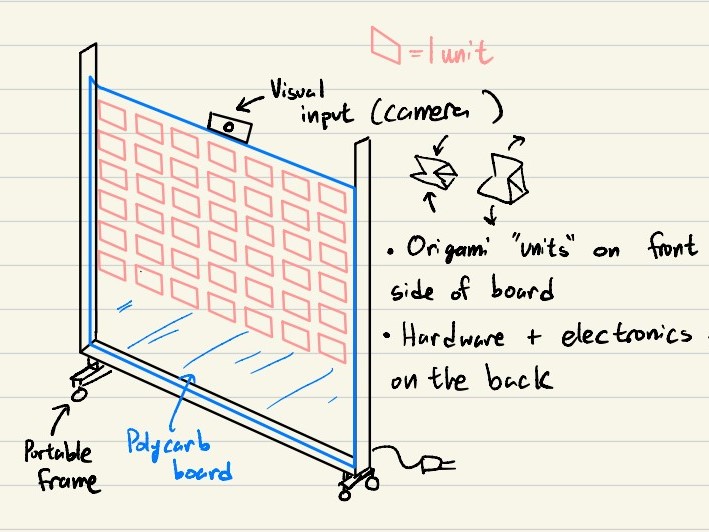 = 1 unit
Visual
input (camera)
• Origami "units" on front
side of board
• Hardware + electronics
on the back
Portable
frame
Polycarb
board